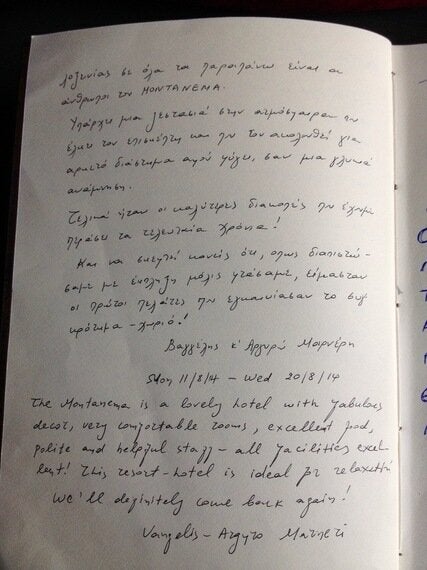 λοξενίας σε όλα τα παραπάνω είναι οι
άνθρωποι του MONTANEMA.
Υπάρχει μια ζεστασιά στην ατμόσφαιρα που
έλκει τον επισκέπτη και που τον ακολουθεί για
αρκετό διάστημα αφού φύγει, σαν μια γλυκιά
ανάμνηση.
Τελικά ήταν οι καλύτερες διακοπές που έχουμε
περάσει τα τελευταία χρόνια!
Και να σκεφτεί κανείς ότι, όπως διαπιστώ-
σαμε με έκπληξη μόλις φτάσαμε, είμασταν
οι πρώτοι πελάτες που εγκαινίασαν το συγ
κρότημα - χωριό!
Βαγγέλης κ' Αργυρώ Μαρνέρη
Mon 11/8/14 - Wed 20/8/14
The Montanema is a lovely hotel with fabulous
decor, very comfortable rooms, excellent pool,
polite and helpful staff - all facilities excel-
lent! This resort-hotel is ideal for relaxation
We'll definitely come back again!
Vangelis - Argyro Marneri